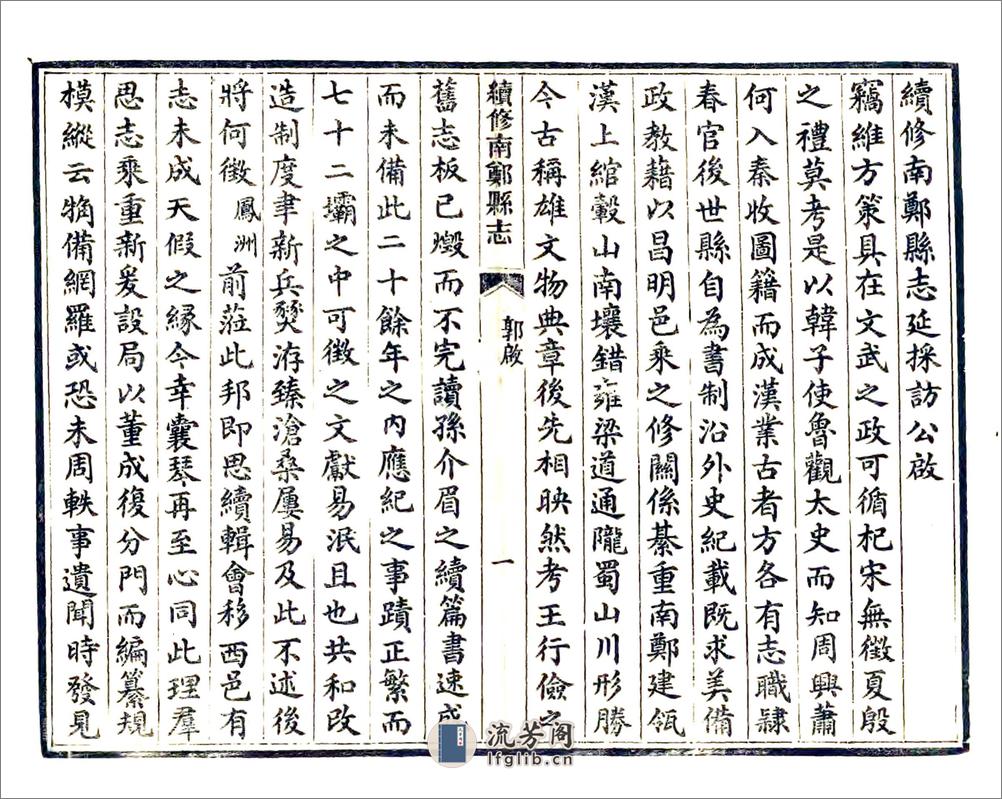 續修南鄭縣志延採訪公啟
竊維方策具在文武之政可循杞宋無徵夏殷
之禮莫考是以韓子使魯觀太史而知周興蕭
何入秦收圖籍而成漢業古者方各有志職隸
春官後世縣自為書制沿外史紀載既求美備
政教藉以昌明邑乘之修關係綦重南鄭建瓴
漢上綰轂山南壤錯雍梁道通隴蜀山川形勝
今古稱雄文物典章後先相映然考王行儉之
續修南鄭縣志 郭啟 一
舊志板已燬而不完讀孫介眉之續篇書速成
而未備此二十餘年之內應紀之事蹟正繁而
七十二壩之中可徵之文獻易泯且也共和改
造制度聿新兵燹洊臻滄桑屢易及此不述後
將何徵鳳洲前蒞此邦即思續輯會移西邑有
志未成天假之緣今幸囊琴再至心同此理羣
思志乘重新爰設局以董成復分門而編纂規
模縱云觕備網羅或恐未周軼事遺聞時發見
流芳阁
lfglib.cn